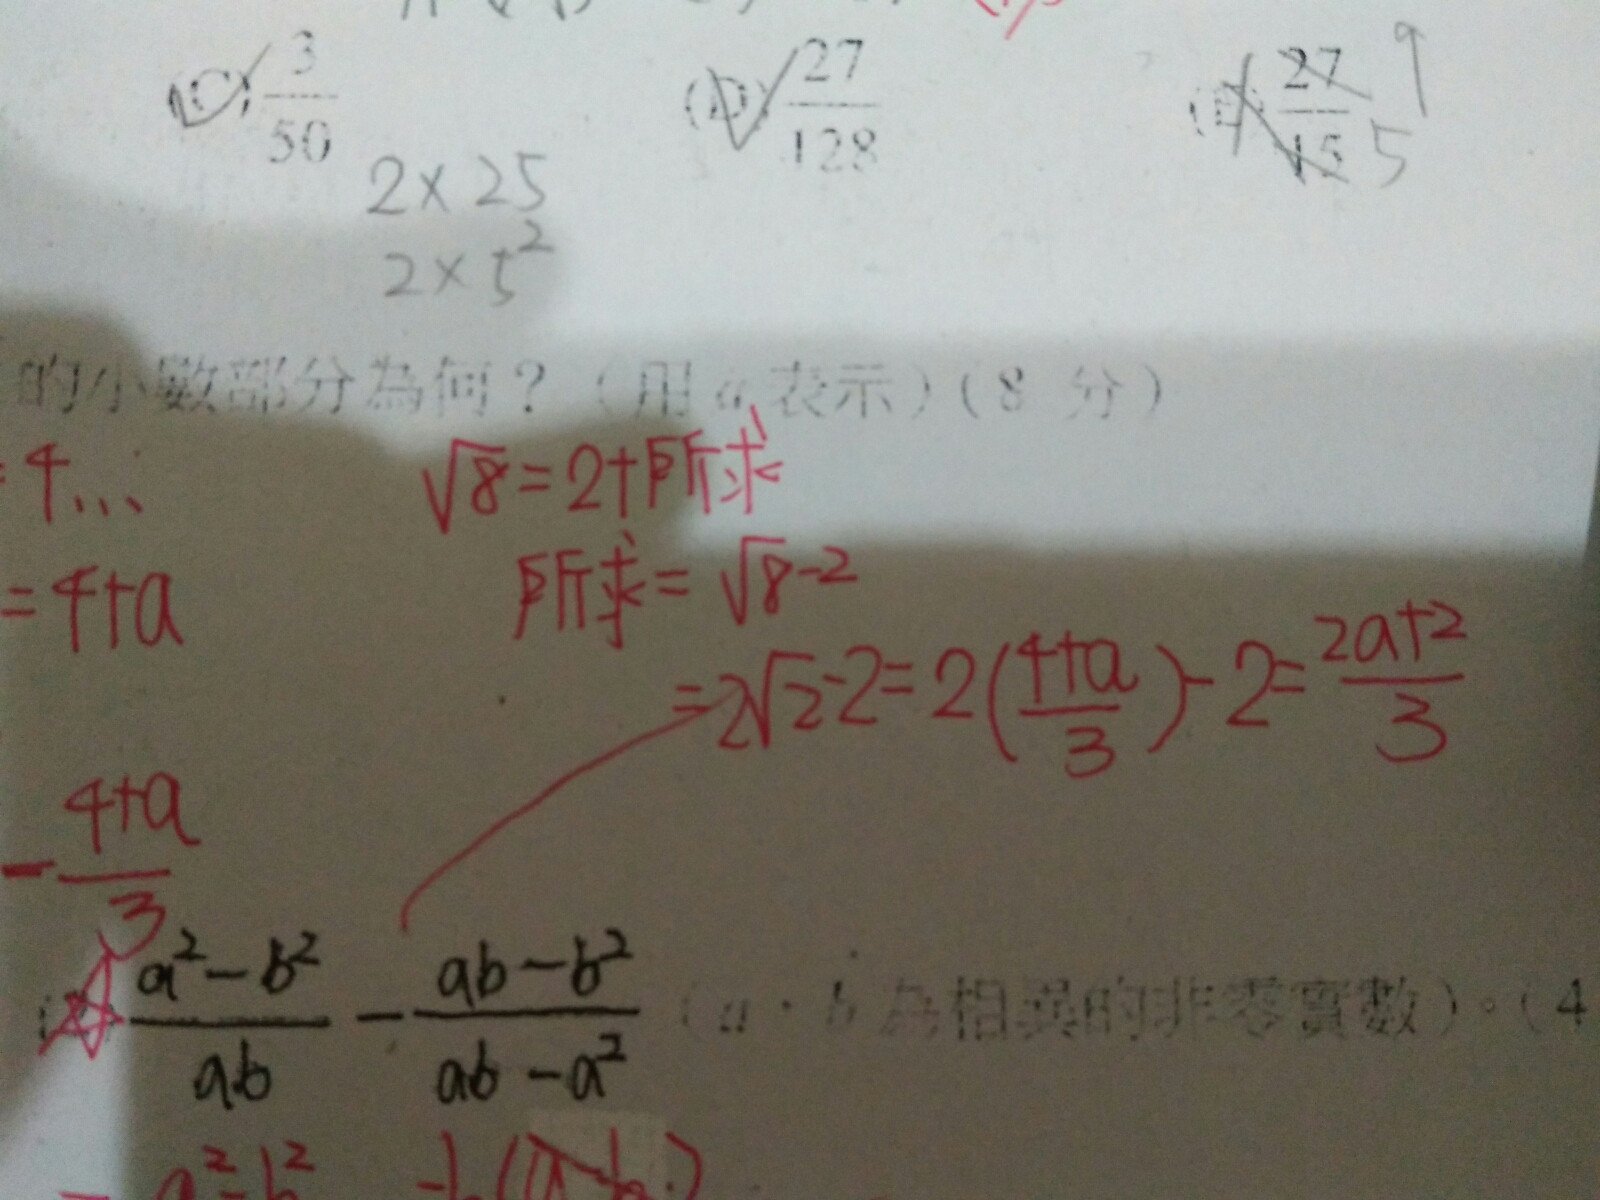 (C) 3/50
(D) 27/128
27/15 9 5
2×25
2×5²
的小數部分為何？（用 a 表示）（8 分）
4...
√8=2+所求
=4+a
所求=√8-2
=2√2-2=2((4+a)/3)-2=(2a+2)/3
(4+a)/3
(a²-b²)/ab - (ab-b²)/(ab-a²) （a，b 為相異的非零實數）。（4
a²-b² -b(a-b)